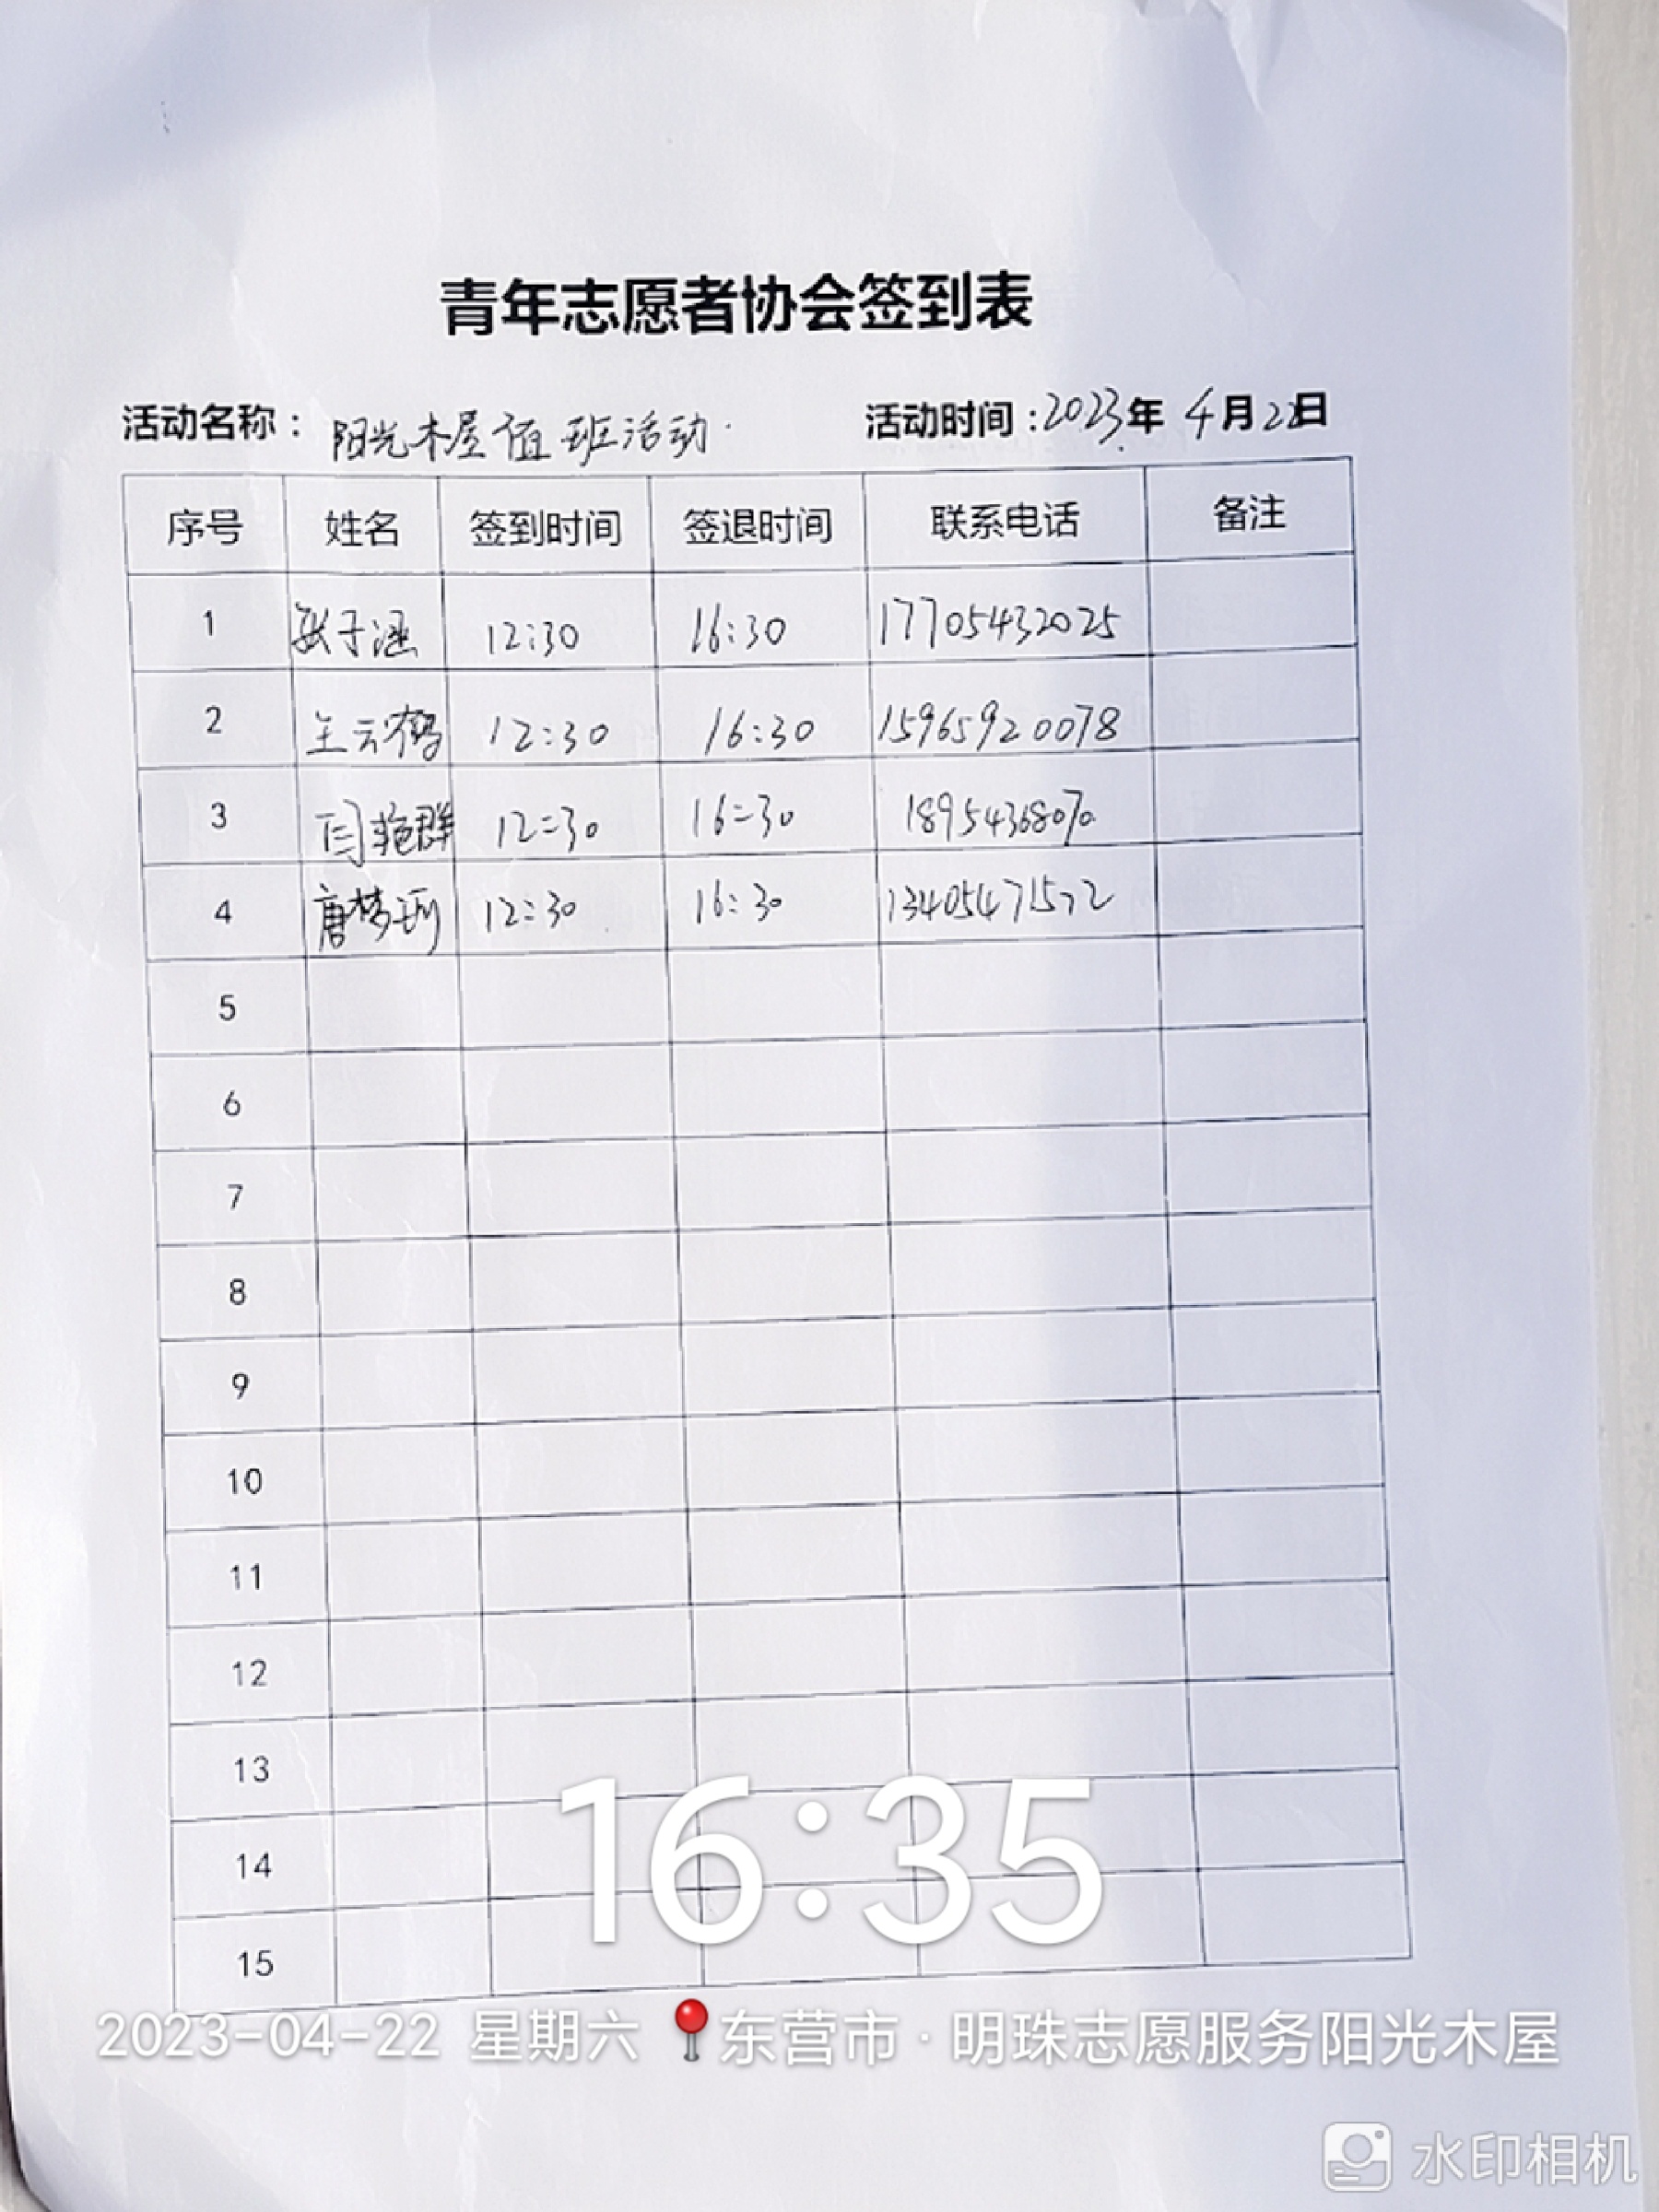 青年志愿者协会签到表
活动名称：阳光木屋值班活动 活动时间：2023年4月22日
序号 姓名 签到时间 签退时间 联系电话 备注
1 子涵 12:30 16:30 17705432025
2 王云鹤 12:30 16:30 15965920078
3 闫艳群 12:30 16:30 18954368070
4 唐梦珂 12:30 16:30 13405471572
5
6
7
8
9
10
11
12
13
14
15
16:35
2023-04-22 星期六 东营市·明珠志愿服务阳光木屋
水印相机